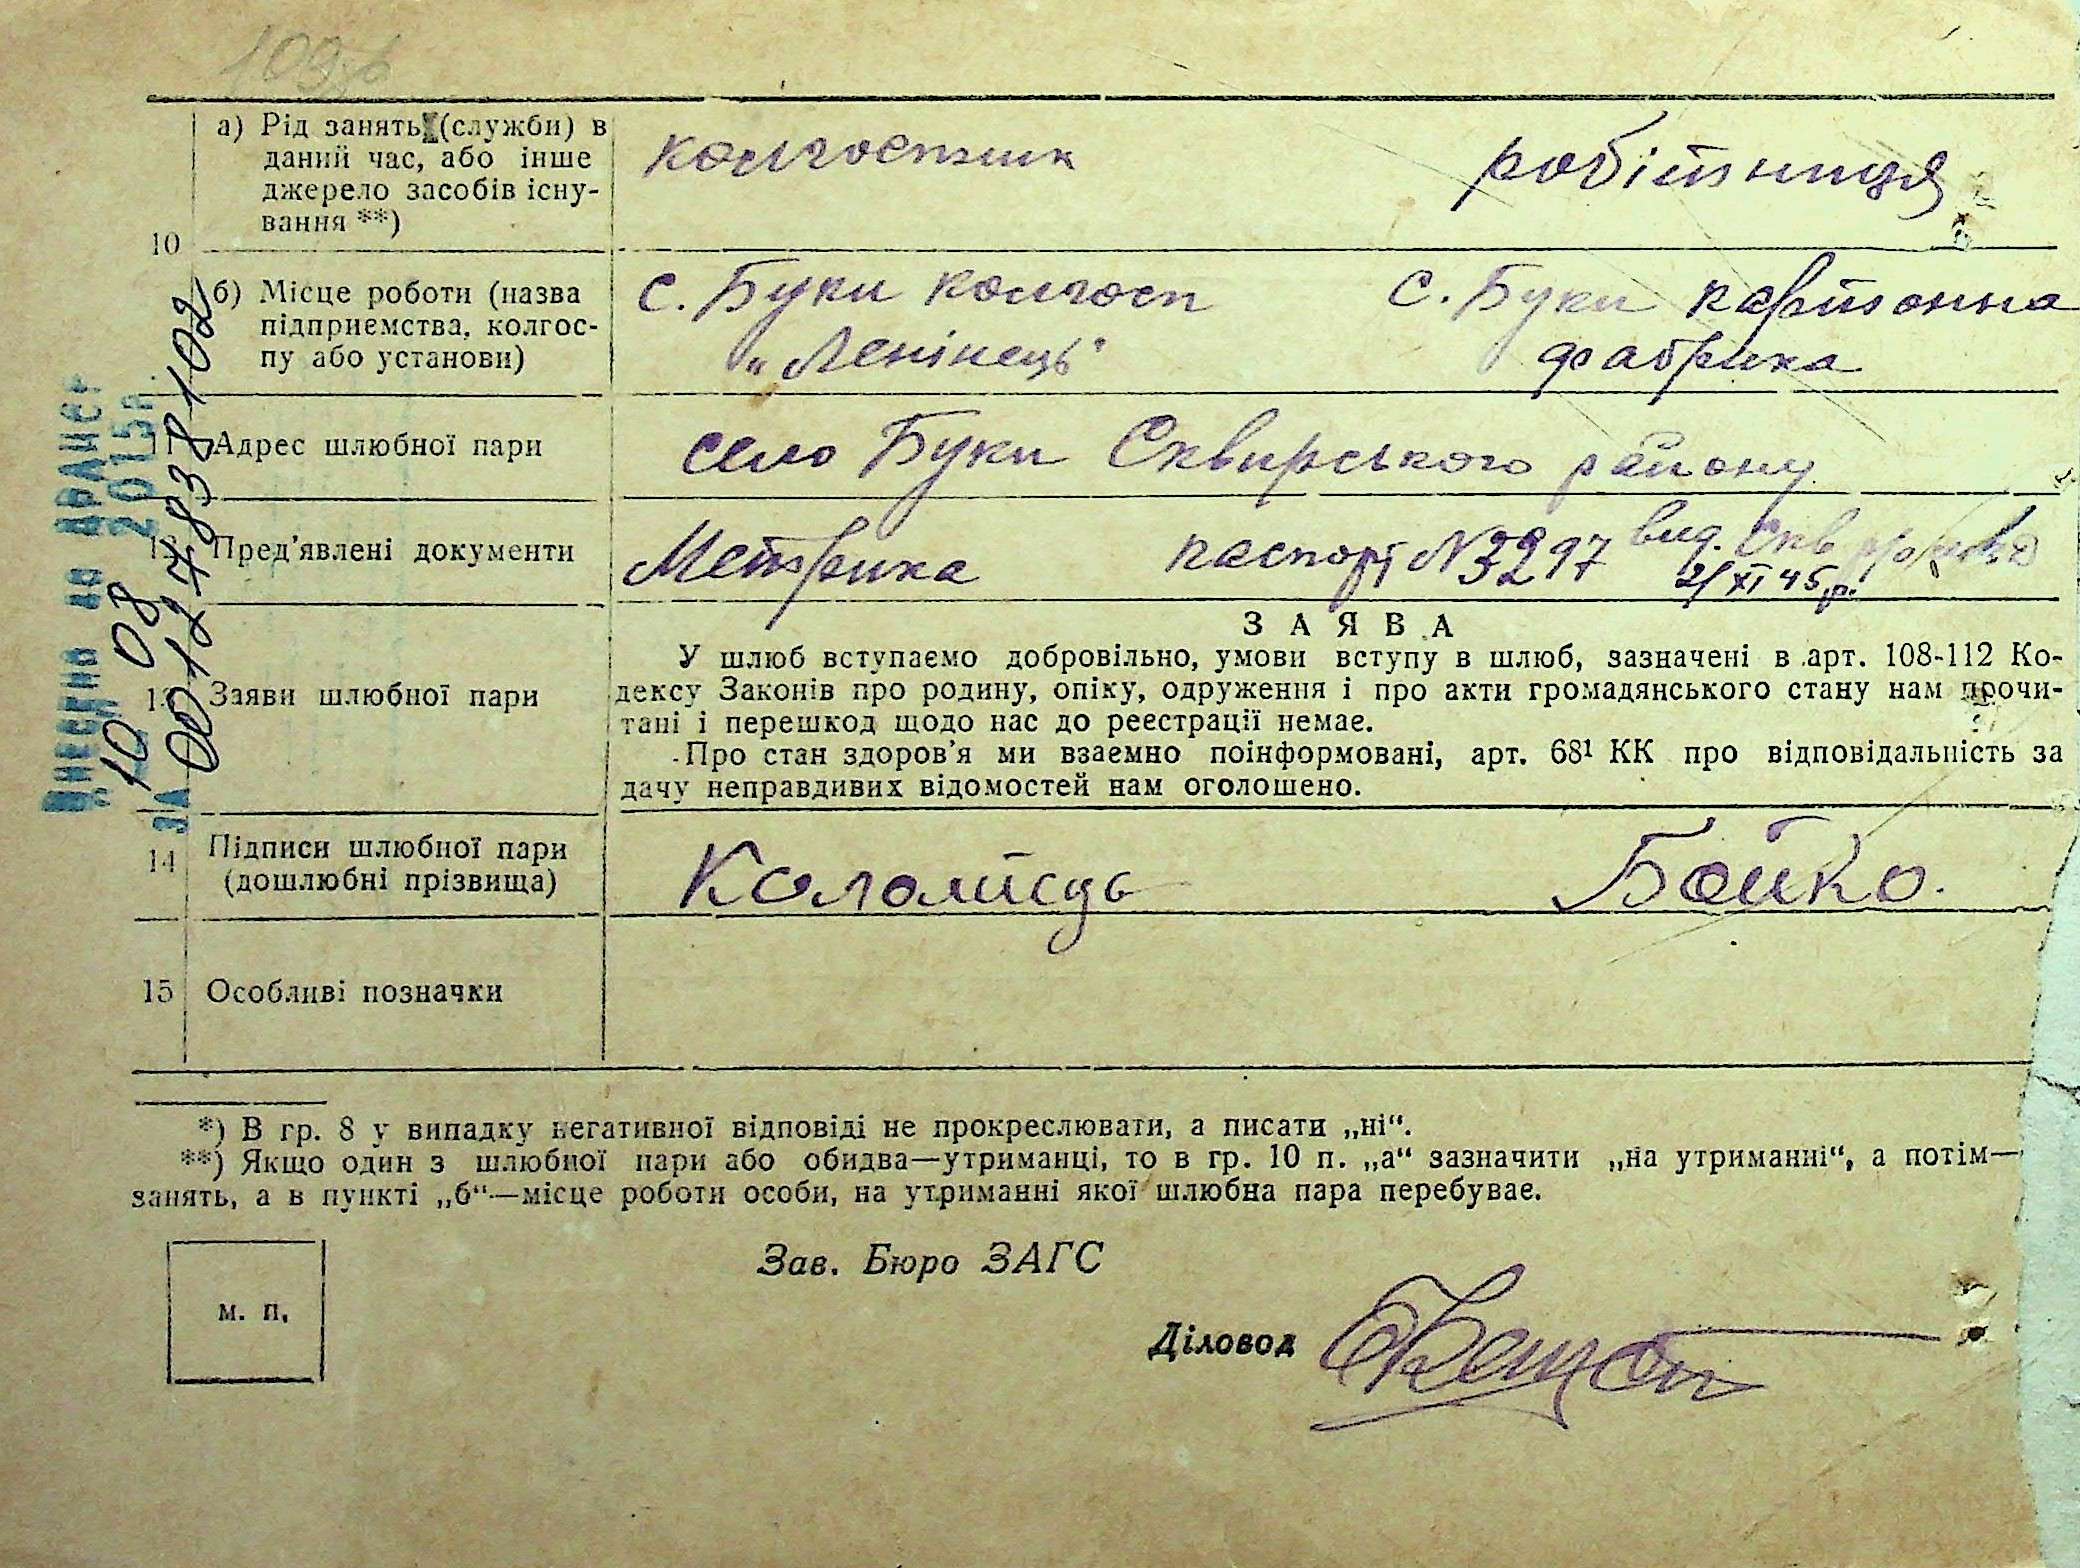 а) Рід занять (служби) в
даний час, або інше
джерело засобів існу-
вання **)
колгоспник
робітниця
10
б) Місце роботи (назва
підприємства, колгос-
пу або установи)
с. Буки колгосп
„Ленінець"
с. Буки картонна
фабрика
11 Адрес шлюбної пари
село Буки Сквирського району
12 Пред'явлені документи
Метрика
паспорт N 3297 вид. Скв
2/XI 45 р.
13 Заяви шлюбної пари
ЗАЯВА
У шлюб вступаємо добровільно, умови вступу в шлюб, зазначені в арт. 108-112 Ко-
дексу Законів про родину, опіку, одруження і про акти громадянського стану нам прочи-
тані і перешкод щодо нас до реєстрації немає.
Про стан здоров'я ми взаємно поінформовані, арт. 68¹ КК про відповідальність за
дачу неправдивих відомостей нам оголошено.
14 Підписи шлюбної пари
(дошлюбні прізвища)
Коломієць
Бойко.
15 Особливі позначки
*) В гр. 8 у випадку негативної відповіді не прокреслювати, а писати „ні“.
**) Якщо один з шлюбної пари або обидва—утриманці, то в гр. 10 п. „а“ зазначити „на утриманні“, а потім—
занять, а в пункті „б“—місце роботи особи, на утриманні якої шлюбна пара перебуває.
Зав. Бюро ЗАГС
м. п.
Діловод
Внесено до ДРАЦСГ
10 08 2015р.
ЗА 00124838102